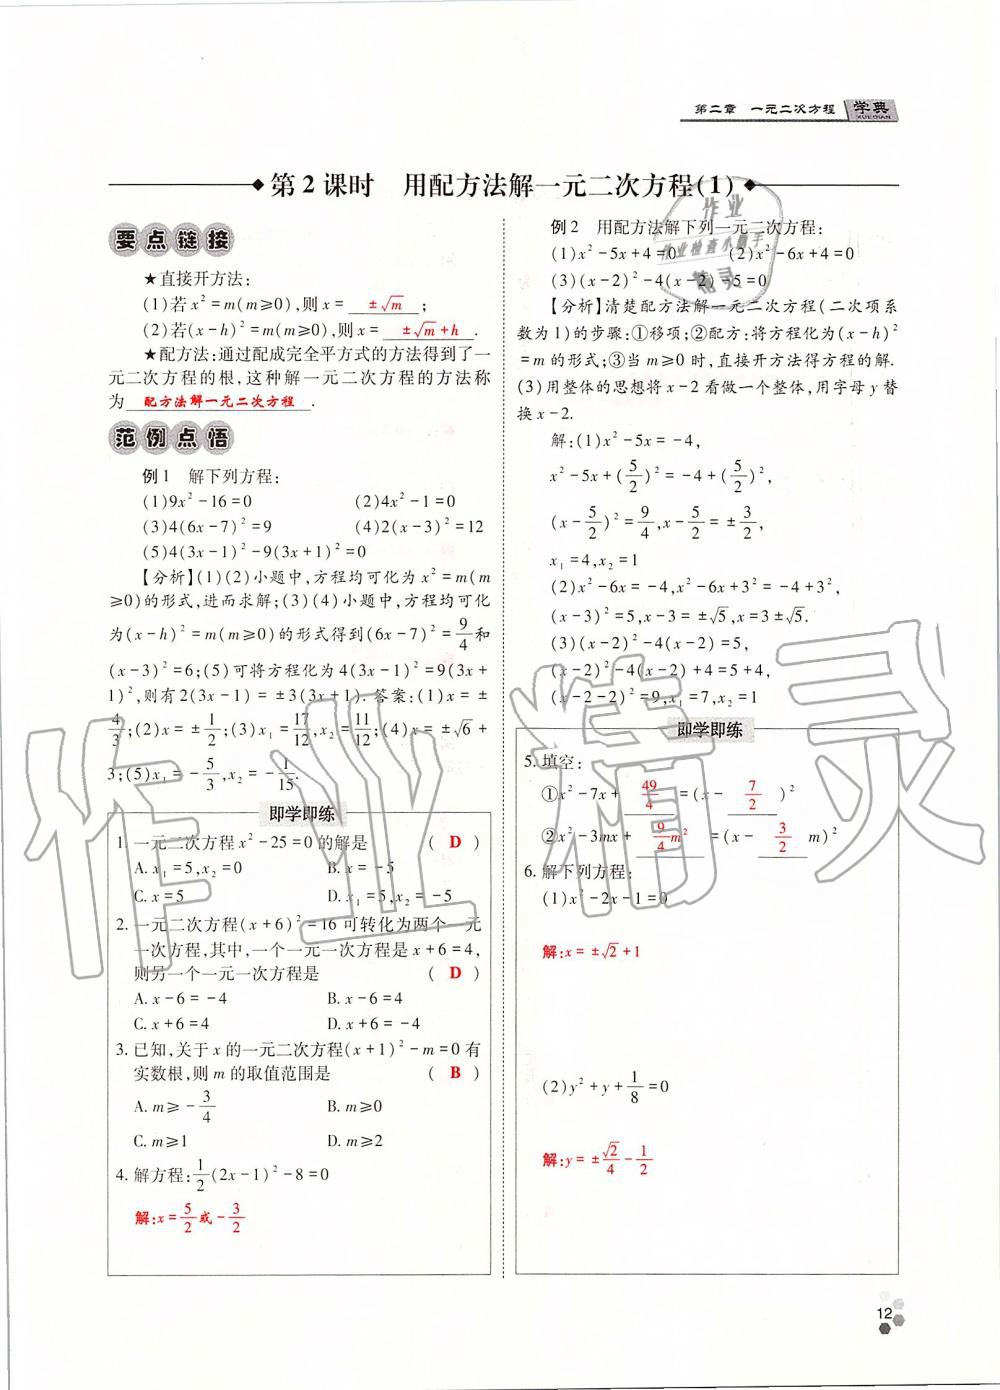 第二章　一元二次方程 学典
XUEDIAN
第2课时　用配方法解一元二次方程(1)
要点链接
★直接开方法:
(1)若x²=m(m≥0),则x= ±√m ;
(2)若(x-h)²=m(m≥0),则x= ±√m+h .
★配方法:通过配成完全平方式的方法得到了一
元二次方程的根,这种解一元二次方程的方法称
为 配方法解一元二次方程 .
范例点悟
例1　解下列方程:
(1)9x²-16=0　(2)4x²-1=0
(3)4(6x-7)²=9　(4)2(x-3)²=12
(5)4(3x-1)²-9(3x+1)²=0
【分析】(1)(2)小题中,方程均可化为x²=m(m
≥0)的形式,进而求解;(3)(4)小题中,方程均可化
为(x-h)²=m(m≥0)的形式得到(6x-7)²=9/4和
(x-3)²=6;(5)可将方程化为4(3x-1)²=9(3x+
1)²,则有2(3x-1)=±3(3x+1).答案:(1)x=±
4/3;(2)x=±1/2;(3)x₁=17/12,x₂=11/12;(4)x=±√6+
3;(5)x₁=-5/3,x₂=-1/15.
即学即练
1. 一元二次方程x²-25=0的解是 ( D )
A. x₁=5,x₂=0　B. x=-5
C. x=5　D. x₁=5,x₂=-5
2. 一元二次方程(x+6)²=16可转化为两个一元
一次方程,其中,一个一元一次方程是x+6=4,
则另一个一元一次方程是 ( D )
A. x-6=-4　B. x-6=4
C. x+6=4　D. x+6=-4
3. 已知,关于x的一元二次方程(x+1)²-m=0有
实数根,则m的取值范围是 ( B )
A. m≥-3/4　B. m≥0
C. m≥1　D. m≥2
4. 解方程:1/2(2x-1)²-8=0
解:x=5/2或-3/2
例2　用配方法解下列一元二次方程:
(1)x²-5x+4=0　(2)x²-6x+4=0
(3)(x-2)²-4(x-2)-5=0
【分析】清楚配方法解一元二次方程(二次项系
数为1)的步骤:①移项;②配方:将方程化为(x-h)²
=m的形式;③当m≥0时,直接开方法得方程的解.
(3)用整体的思想将x-2看做一个整体,用字母y替
换x-2.
解:(1)x²-5x=-4,
x²-5x+(5/2)²=-4+(5/2)²,
(x-5/2)²=9/4,x-5/2=±3/2,
x₁=4,x₂=1
(2)x²-6x=-4,x²-6x+3²=-4+3²,
(x-3)²=5,x-3=±√5,x=3±√5.
(3)(x-2)²-4(x-2)=5,
(x-2)²-4(x-2)+4=5+4,
(x-2-2)²=9,x₁=7,x₂=1
即学即练
5. 填空:
①x²-7x+ 49/4 =(x- 7/2 )²
②x²-3mx+ 9/4m² =(x- 3/2 m)²
6. 解下列方程:
(1)x²-2x-1=0
解:x=±√2+1
(2)y²+y+1/8=0
解:y=±√2/4-1/2
12
作业
作业检查小助手
精灵
作业精灵